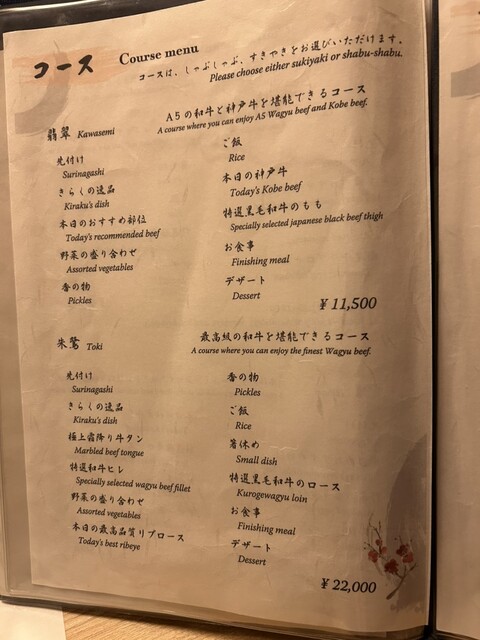 コース
Course menu
コースは、しゃぶしゃぶ、すきやきをお選びいただけます。
Please choose either sukiyaki or shabu-shabu.
翡翠 Kawasemi
A5の和牛と神戸牛を堪能できるコース
A course where you can enjoy A5 Wagyu beef and Kobe beef.
先付け
Surinagashi
きらくの逸品
Kiraku's dish
本日のおすすめ部位
Today's recommended beef
野菜の盛り合わせ
Assorted vegetables
香の物
Pickles
ご飯
Rice
本日の神戸牛
Today's Kobe beef
特選黒毛和牛のもも
Specially selected japanese black beef thigh
お食事
Finishing meal
デザート
Dessert
¥11,500
朱鷺 Toki
最高級の和牛を堪能できるコース
A course where you can enjoy the finest Wagyu beef.
先付け
Surinagashi
きらくの逸品
Kiraku's dish
極上霜降り牛タン
Marbled beef tongue
特選和牛ヒレ
Specially selected wagyu beef fillet
野菜の盛り合わせ
Assorted vegetables
本日の最高品質リブロース
Today's best ribeye
香の物
Pickles
ご飯
Rice
箸休め
Small dish
特選黒毛和牛のロース
Kurogewagyu loin
お食事
Finishing meal
デザート
Dessert
¥22,000